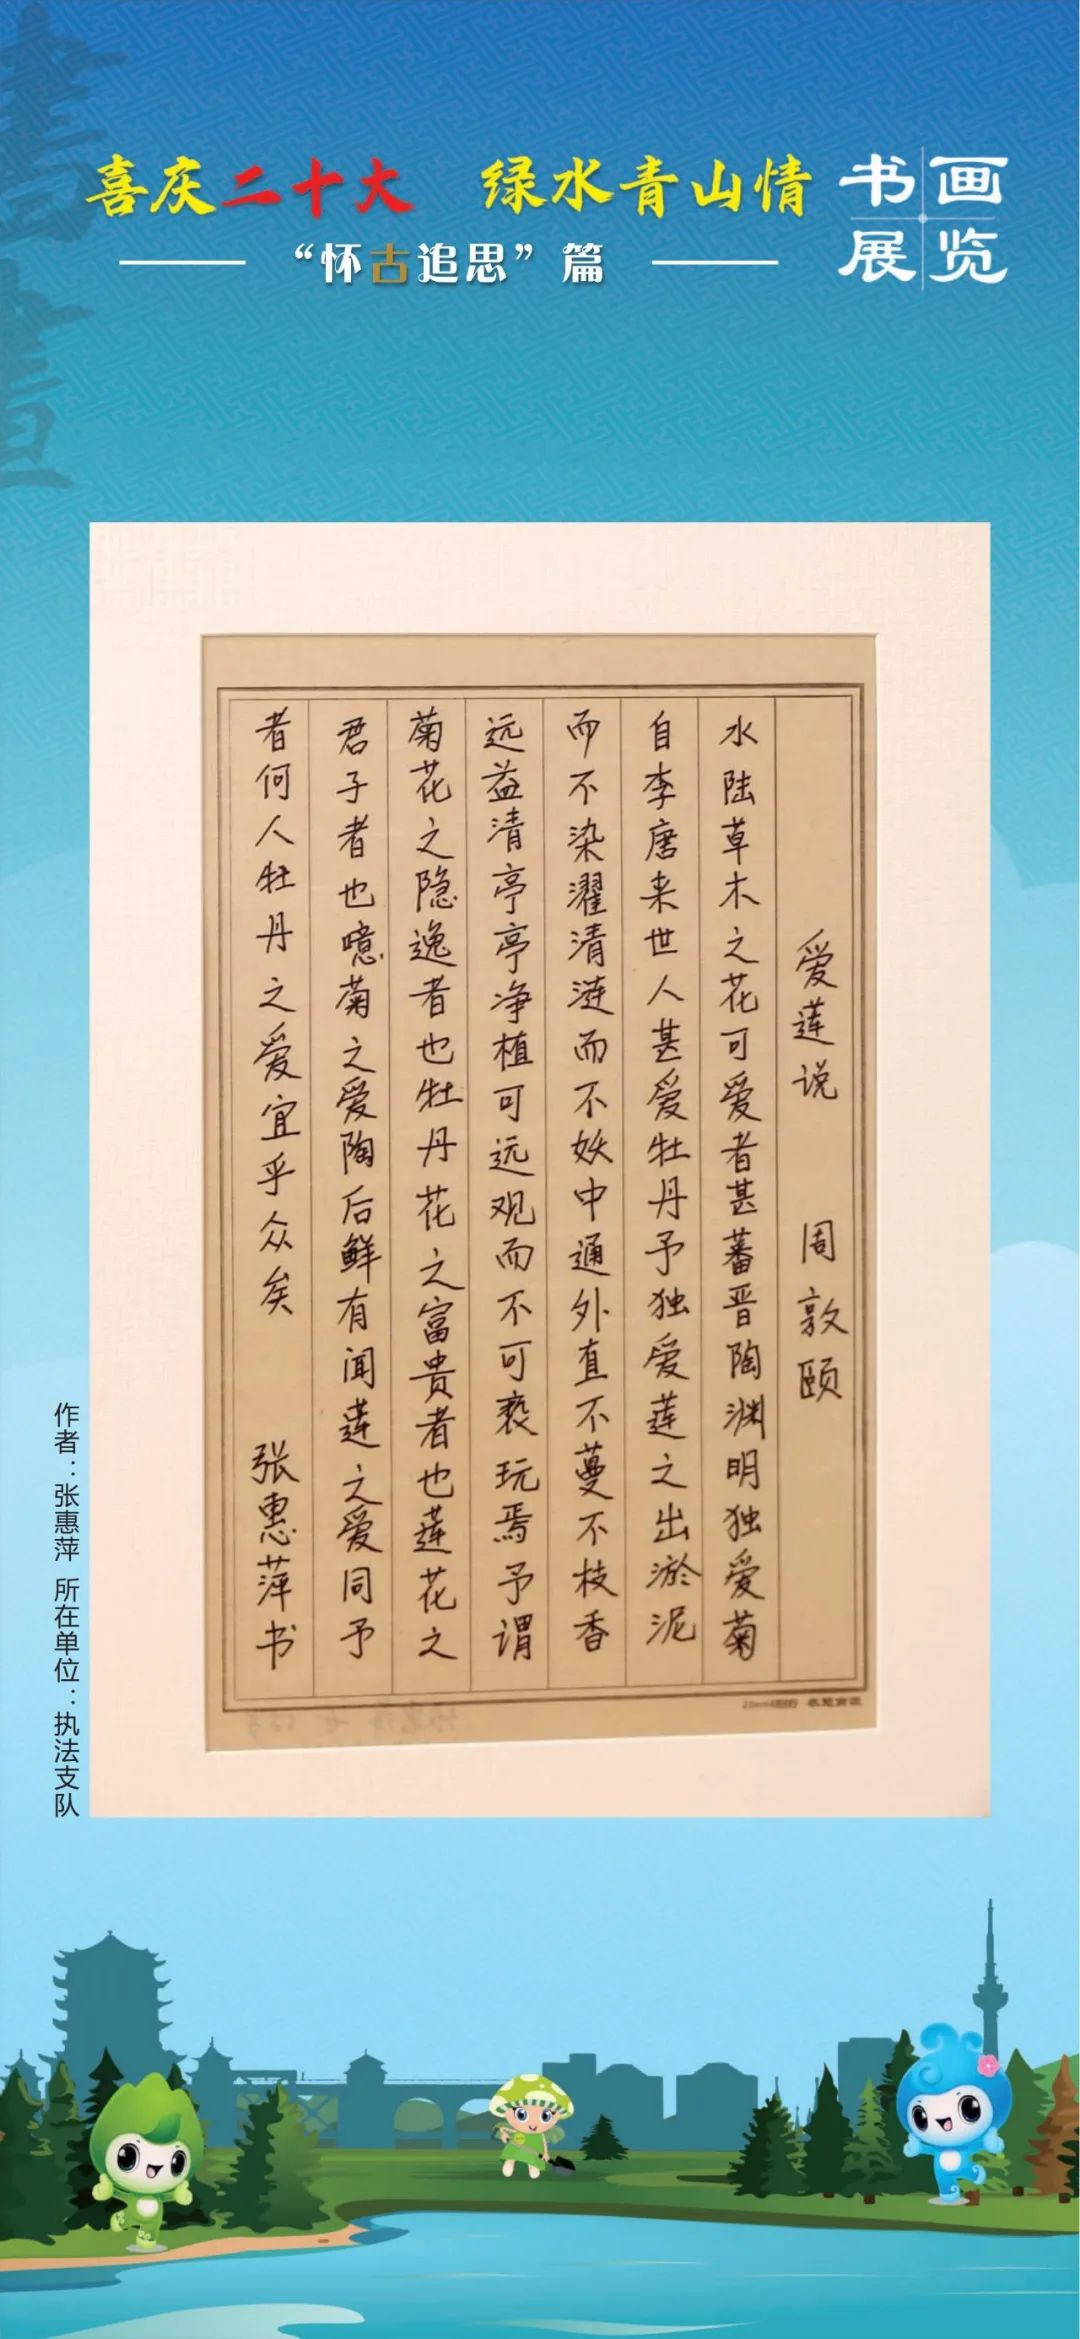 喜庆二十大 绿水青山情
书画展览
“怀古追思”篇
爱莲说 周敦颐
水陆草木之花可爱者甚蕃晋陶渊明独爱菊
自李唐来世人甚爱牡丹予独爱莲之出淤泥
而不染濯清涟而不妖中通外直不蔓不枝香
远益清亭亭净植可远观而不可亵玩焉予谓
菊花之隐逸者也牡丹花之富贵者也莲花之
君子者也噫菊之爱陶后鲜有闻莲之爱同予
者何人牡丹之爱宜乎众矣 张惠萍书
作者：张惠萍 所在单位：执法支队
書畫